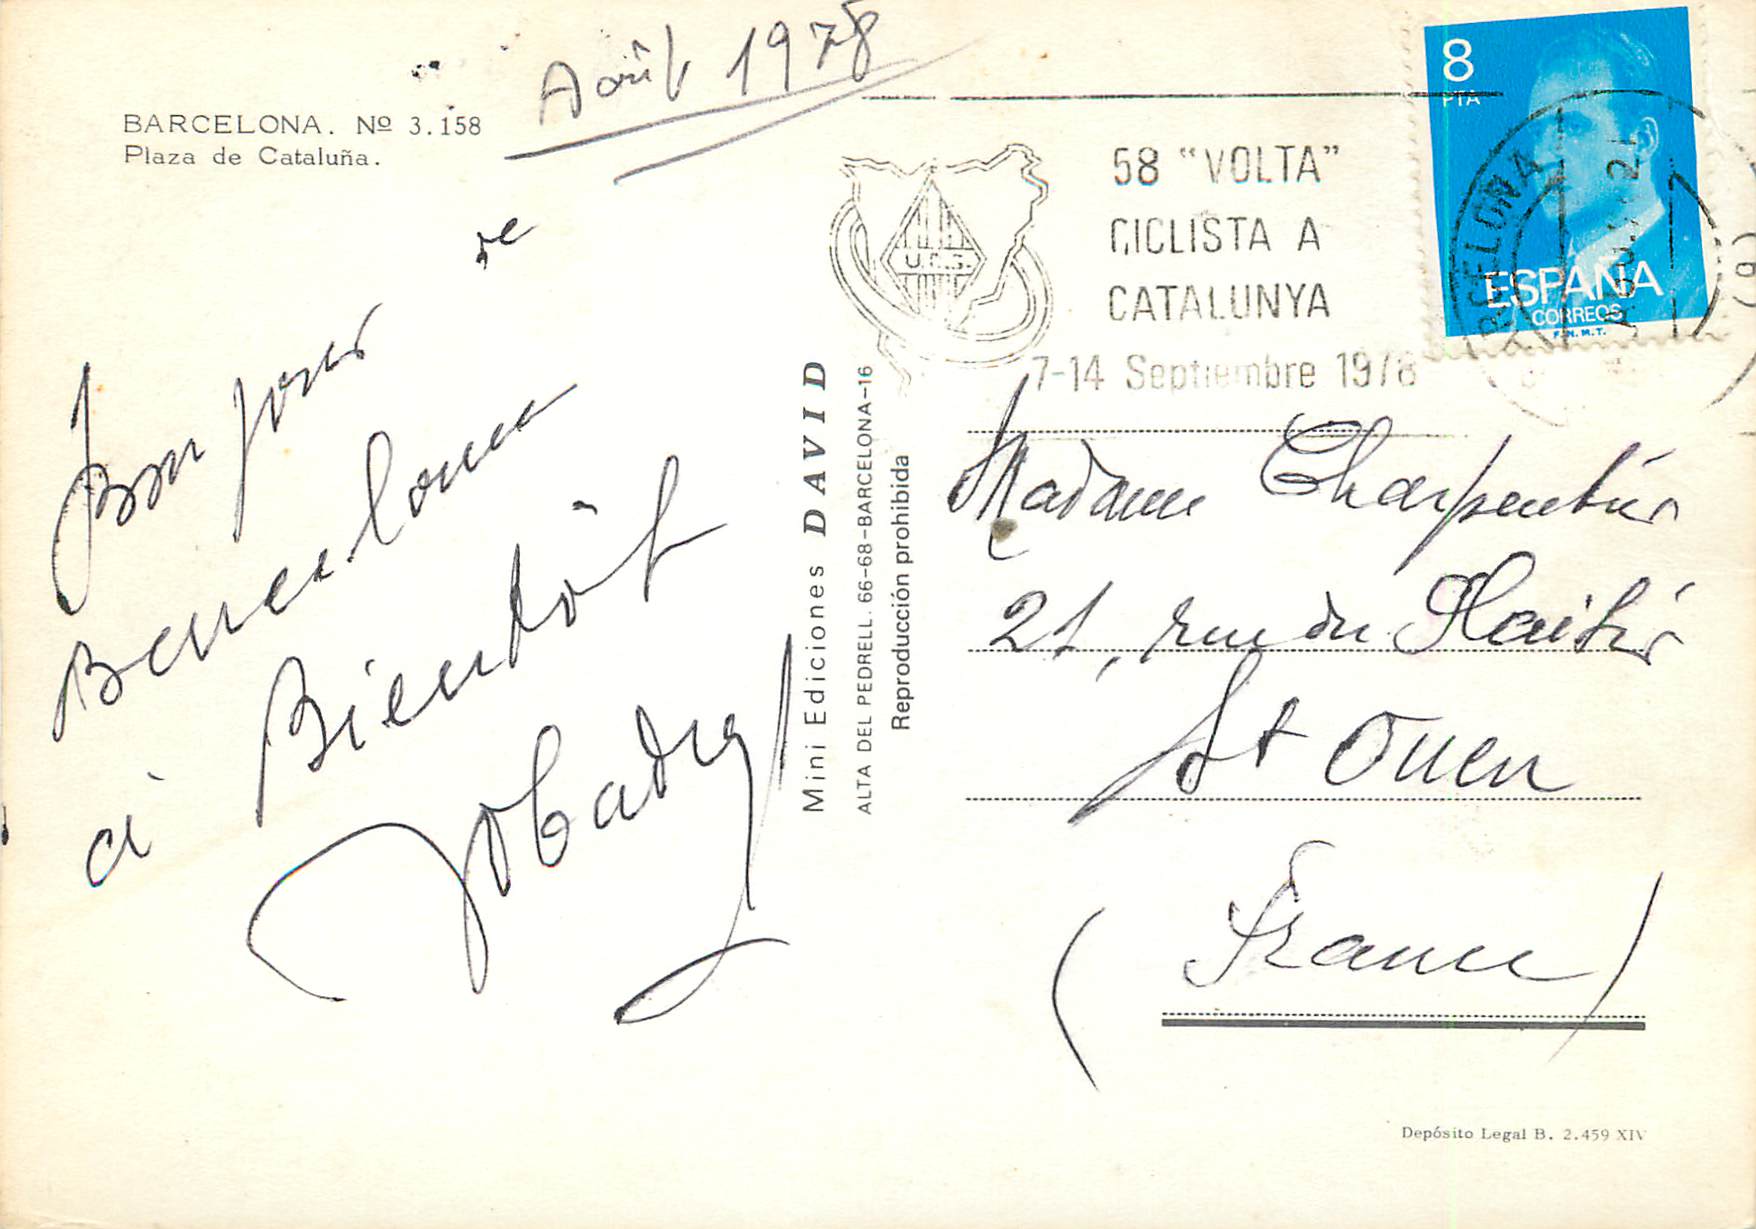 Août 1978
BARCELONA. Nº 3.158
Plaza de Cataluña.
Bon jour de
Barcelona
a Bientôt
Mini Ediciones DAVID
ALTA DEL PEDRELL. 66-68-BARCELONA-16
Reproducción prohibida
58 "VOLTA"
CICLISTA A
CATALUNYA
7-14 Septiembre 1978
U.E.S.
8
PTA
ESPAÑA
CORREOS
F.N.M.T.
BARCELONA
Madame Charpentier
21, rue du Plaisir
St Ouen
(France)
Depósito Legal B. 2.459 XIV